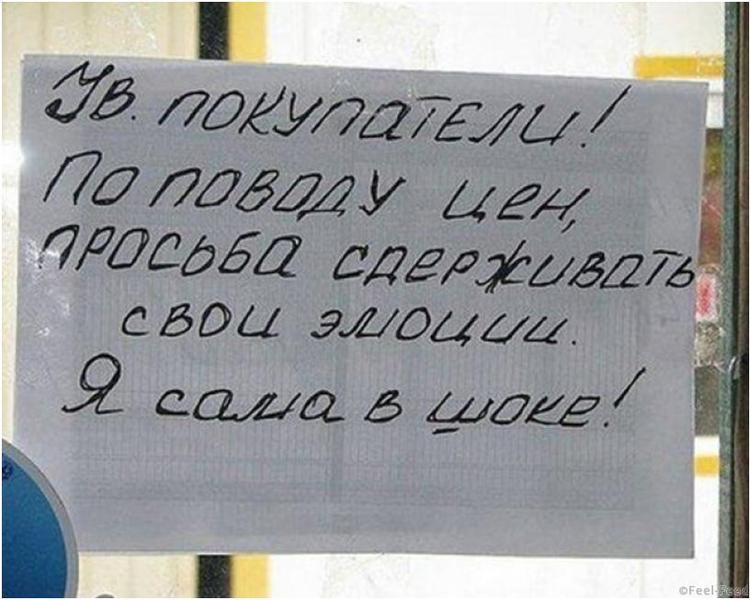 Ув. покупатели!
По поводу цен,
просьба сдерживать
свои эмоции.
Я сама в шоке!
©Feel-Feed